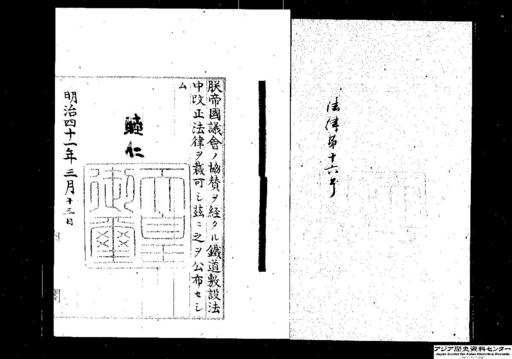 法律第十六号
朕帝國議會ノ協賛ヲ経タル鐵道敷設法
中改正法律ヲ裁可シ茲ニ之ヲ公布セシ
ム
睦仁
天皇御璽
明治四十一年三月十三日
内閣
アジア歴史資料センター
Japan Center for Asian Historical Records